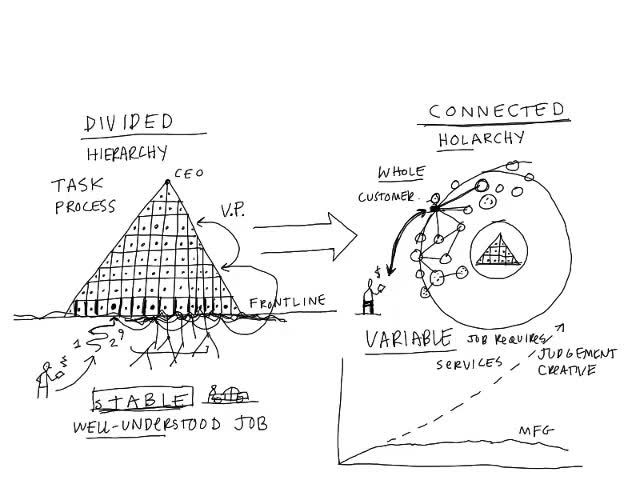 DIVIDED
HIERARCHY
CEO
TASK
PROCESS
V.P.
FRONTLINE
1
29
$
STABLE
WELL-UNDERSTOOD JOB
CONNECTED
HOLARCHY
WHOLE
CUSTOMER
$
VARIABLE JOB REQUIRES
SERVICES JUDGEMENT
CREATIVE
MFG